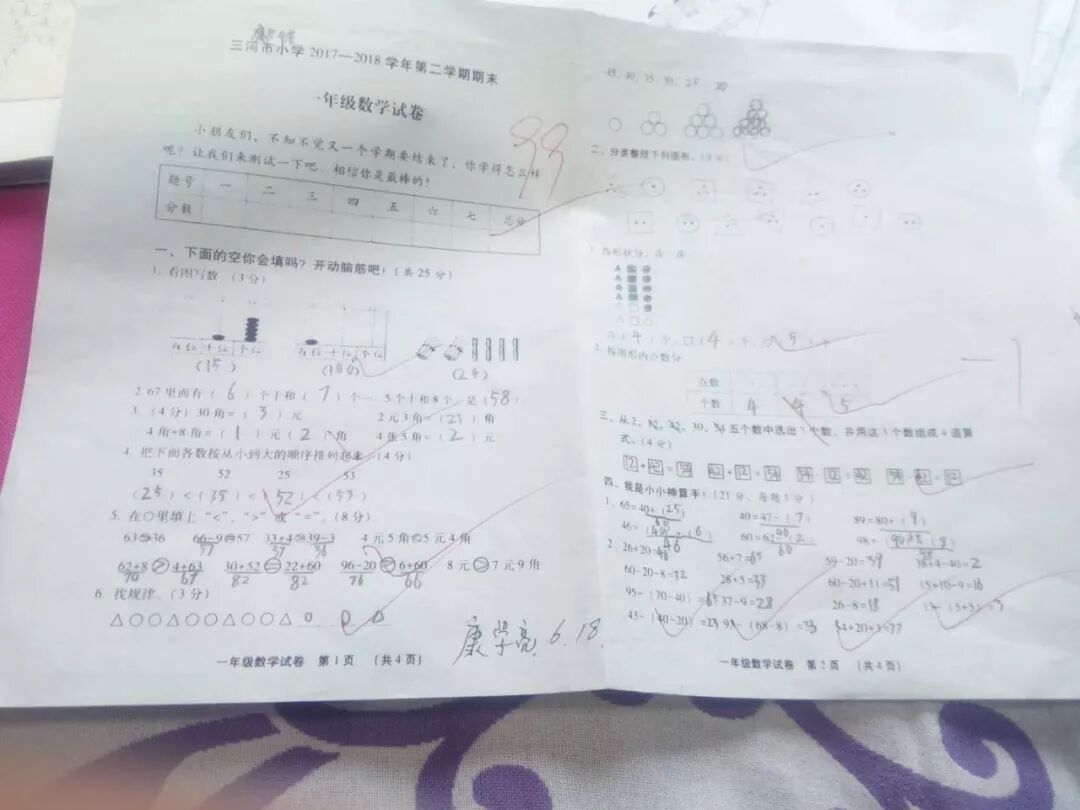 三河市小学 2017—2018 学年第二学期期末
一年级数学试卷
小朋友们，不知不觉又一个学期要结束了，你学得怎么样
呢？让我们来测试一下吧，相信你是最棒的！
99
题号 一 二 三 四 五 六 七 总分
分数
一、下面的空你会填吗？开动脑筋吧！（共 25 分）
1. 看图写数（3 分）
百位 十位 个位 百位 十位 个位
(15) (100) (24)
2. 67 里面有（6）个十和（7）个一，5 个十和 8 个一是（58）
3.（4 分）30 角=（3）元 2 元 3 角=（23）角
4 角+8 角=（1）元（2）角 4 张 5 角=（2）元
4. 把下面各数按从小到大的顺序排列起来（4 分）
35 52 25 53
（25）<（35）<（52）<（53）
5. 在○里填上“<”、“>”或“=”。（8 分）
63 36 66-9 57 33+4 39-3 4 元 5 角 5 元 4 角
57 37 36
62+8 > 4+63 30+52 = 22+60 96-20 > 6+60 8 元 > 7 元 9 角
70 67 82 82 76 66
6. 找规律。（3 分）
△○△○○△○○○△ ○ ○ ○
康学亮 6.18.
一年级数学试卷 第 1 页 （共 4 页）
45, 40, 35, 30, 25 20
二、分类整理下列图形。（9 分）
△（4）个，□（4）个，○（5）个
2. 按图形内点数分
点数
个数 4 4 5
-1
五个数中选出 3 个数，并用这 3 个数组成 4 道算
式。（4 分）
12+42=54 42+12=54 54-12=42 54-42=12
四、我是小小神算手！（21 分，每题 1 分）
1. 65=40+（25） 40=47-（7） 89=80+（9）
2. 26+20=46 56+7=63 59-20=39 38+4-40=2
60-20-8=32 28+5=33 60-20+11=51 15+10-9=16
95-（70-40）=65 37-9=28 26-8=18 13-（5+5）=3
43-（40-20）=23 54+20+3=77
一年级数学试卷 第 2 页 （共 4 页）